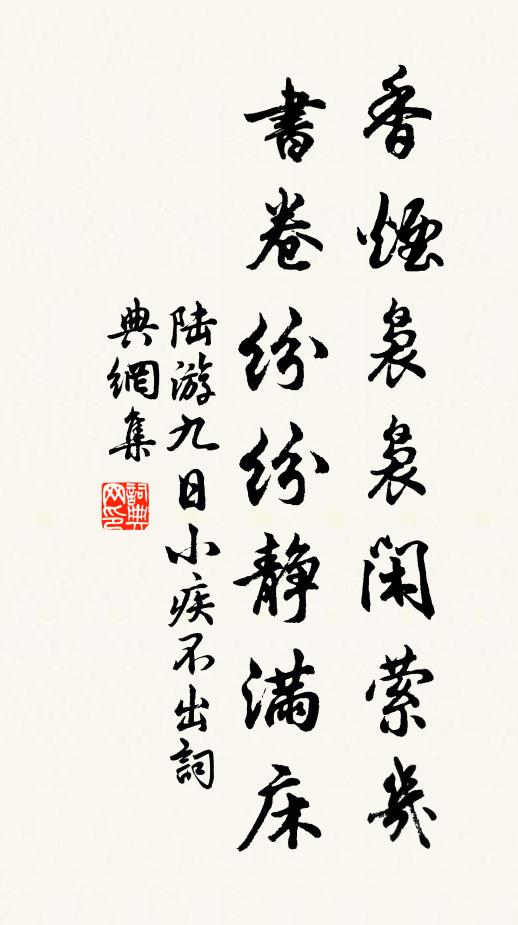 香煙裊裊閑縈几
書卷紛紛靜滿床
陆游九日小疾不出詞
典網集
詞典网印